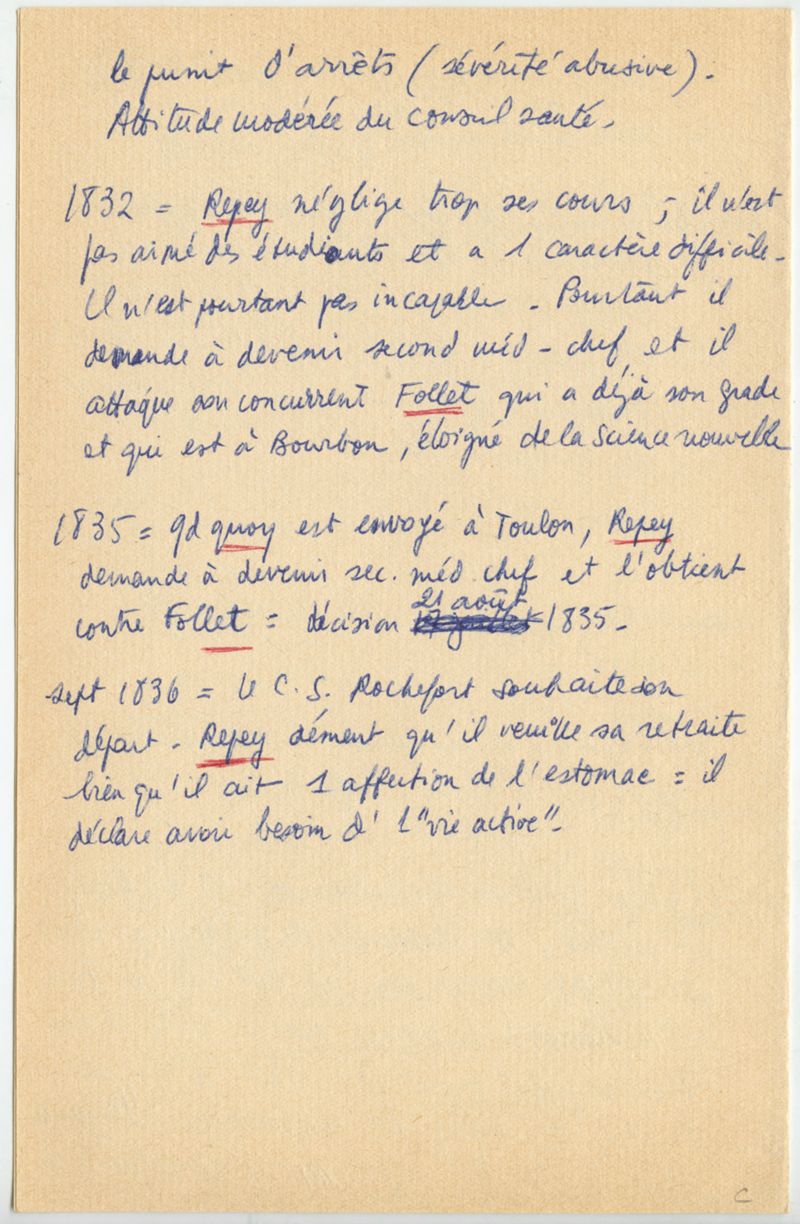 le punit d'arrêts (sévérité abusive).
Attitude modérée du conseil santé.
1832 = Repey néglige trop ses cours ; il n'est
pas aimé des étudiants et a 1 caractère difficile.
Il n'est pourtant pas incapable. Pourtant il
demande à devenir second méd-chef et il
attaque son concurrent Follet qui a déjà son grade
et qui est à Bourbon, éloigné de la science nouvelle
1835 = qd quoy est envoyé à Toulon, Repey
demande à devenir sec. méd chef et l'obtient
21 août
contre Follet = décision 1835.
sept 1836 = le C.S. Rochefort souhaite son
départ. Repey dément qu'il veuille sa retraite
bien qu'il ait 1 affection de l'estomac = il
déclare avoir besoin d'1 "vie active".
C